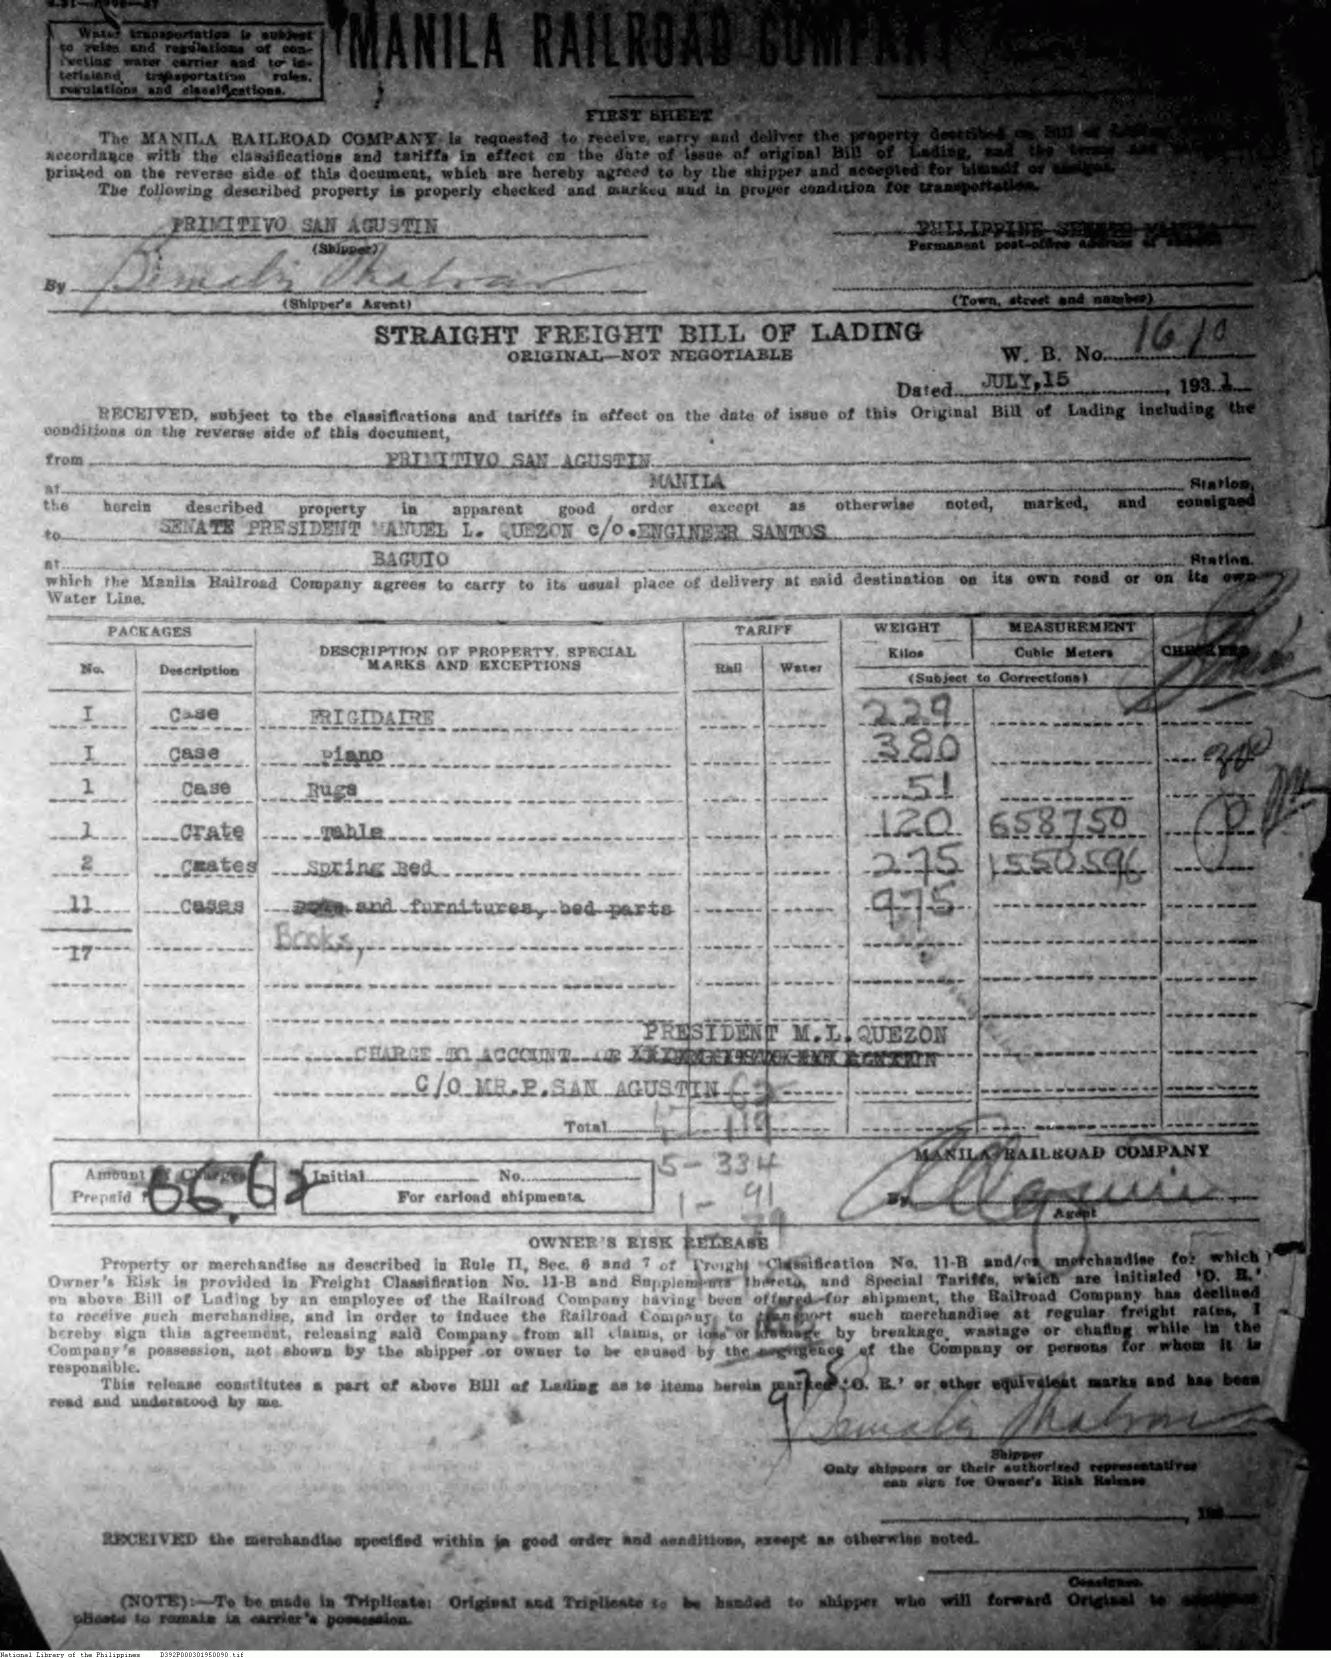 Water transportation is subject
to rules and regulations of con-
necting water carrier and to in-
terisland transportation rules,
regulations and classifications.
MANILA RAILROAD COMPANY
FIRST SHEET
The MANILA RAILROAD COMPANY is requested to receive, carry and deliver the property described on Bill of Lading
accordance with the classifications and tariffs in effect on the date of issue of original Bill of Lading, and the terms and
printed on the reverse side of this document, which are hereby agreed to by the shipper and accepted for himself or assigns.
The following described property is properly checked and marked and in proper condition for transportation.
PRIMITIVO SAN AGUSTIN
PHILIPPINE SENATE MANILA
(Shipper)
Permanent post-office address of shipper
By
(Shipper's Agent)
(Town, street and number)
STRAIGHT FREIGHT BILL OF LADING
ORIGINAL—NOT NEGOTIABLE
W. B. No. 1610
Dated JULY,15, 1931
RECEIVED, subject to the classifications and tariffs in effect on the date of issue of this Original Bill of Lading including the
conditions on the reverse side of this document,
from PRIMITIVO SAN AGUSTIN
at MANILA Station,
the herein described property in apparent good order except as otherwise noted, marked, and consigned
to SENATE PRESIDENT MANUEL L. QUEZON c/o.ENGINEER SANTOS
at BAGUIO Station.
which the Manila Railroad Company agrees to carry to its usual place of delivery at said destination on its own road or on its own
Water Line.
PACKAGES DESCRIPTION OF PROPERTY, SPECIAL MARKS AND EXCEPTIONS TARIFF WEIGHT MEASUREMENT CHECKED
No. Description Rail Water Kilos Cubic Meters
(Subject to Corrections)
I Case FRIGIDAIRE 229
I Case Piano 380
1 Case Rugs 51
1 Crate Table 120 658750
2 Crates Spring Bed 275 1550596
11 Cases and furnitures, bed parts 975
Books,
17
PRESIDENT M.L.QUEZON
CHARGE TO ACCOUNT OF
C/O MR.P.SAN AGUSTIN 62
Total 119
MANILA RAILROAD COMPANY
Amount of Charges
Prepaid 66.62
Initial No.
For carload shipments.
5-334
1-91
79
By
Agent
OWNER'S RISK RELEASE
Property or merchandise as described in Rule II, Sec. 6 and 7 of Freight Classification No. 11-B and/or merchandise for which
Owner's Risk is provided in Freight Classification No. 11-B and Supplements thereto, and Special Tariffs, which are initialed 'O. R.'
on above Bill of Lading by an employee of the Railroad Company having been offered for shipment, the Railroad Company has declined
to receive such merchandise, and in order to induce the Railroad Company to transport such merchandise at regular freight rates, I
hereby sign this agreement, releasing said Company from all claims, or loss or damage by breakage, wastage or chafing while in the
Company's possession, not shown by the shipper or owner to be caused by the negligence of the Company or persons for whom it is
responsible.
This release constitutes a part of above Bill of Lading as to items herein marked 'O. R.' or other equivalent marks and has been
read and understood by me.
975
Shipper
Only shippers or their authorized representatives
can sign for Owner's Risk Release
, 193
RECEIVED the merchandise specified within in good order and conditions, except as otherwise noted.
Consignee.
(NOTE):—To be made in Triplicate: Original and Triplicate to be handed to shipper who will forward Original to consignee
plicate to remain in carrier's possession.
National Library of the Philippines D392P000301950090.tif